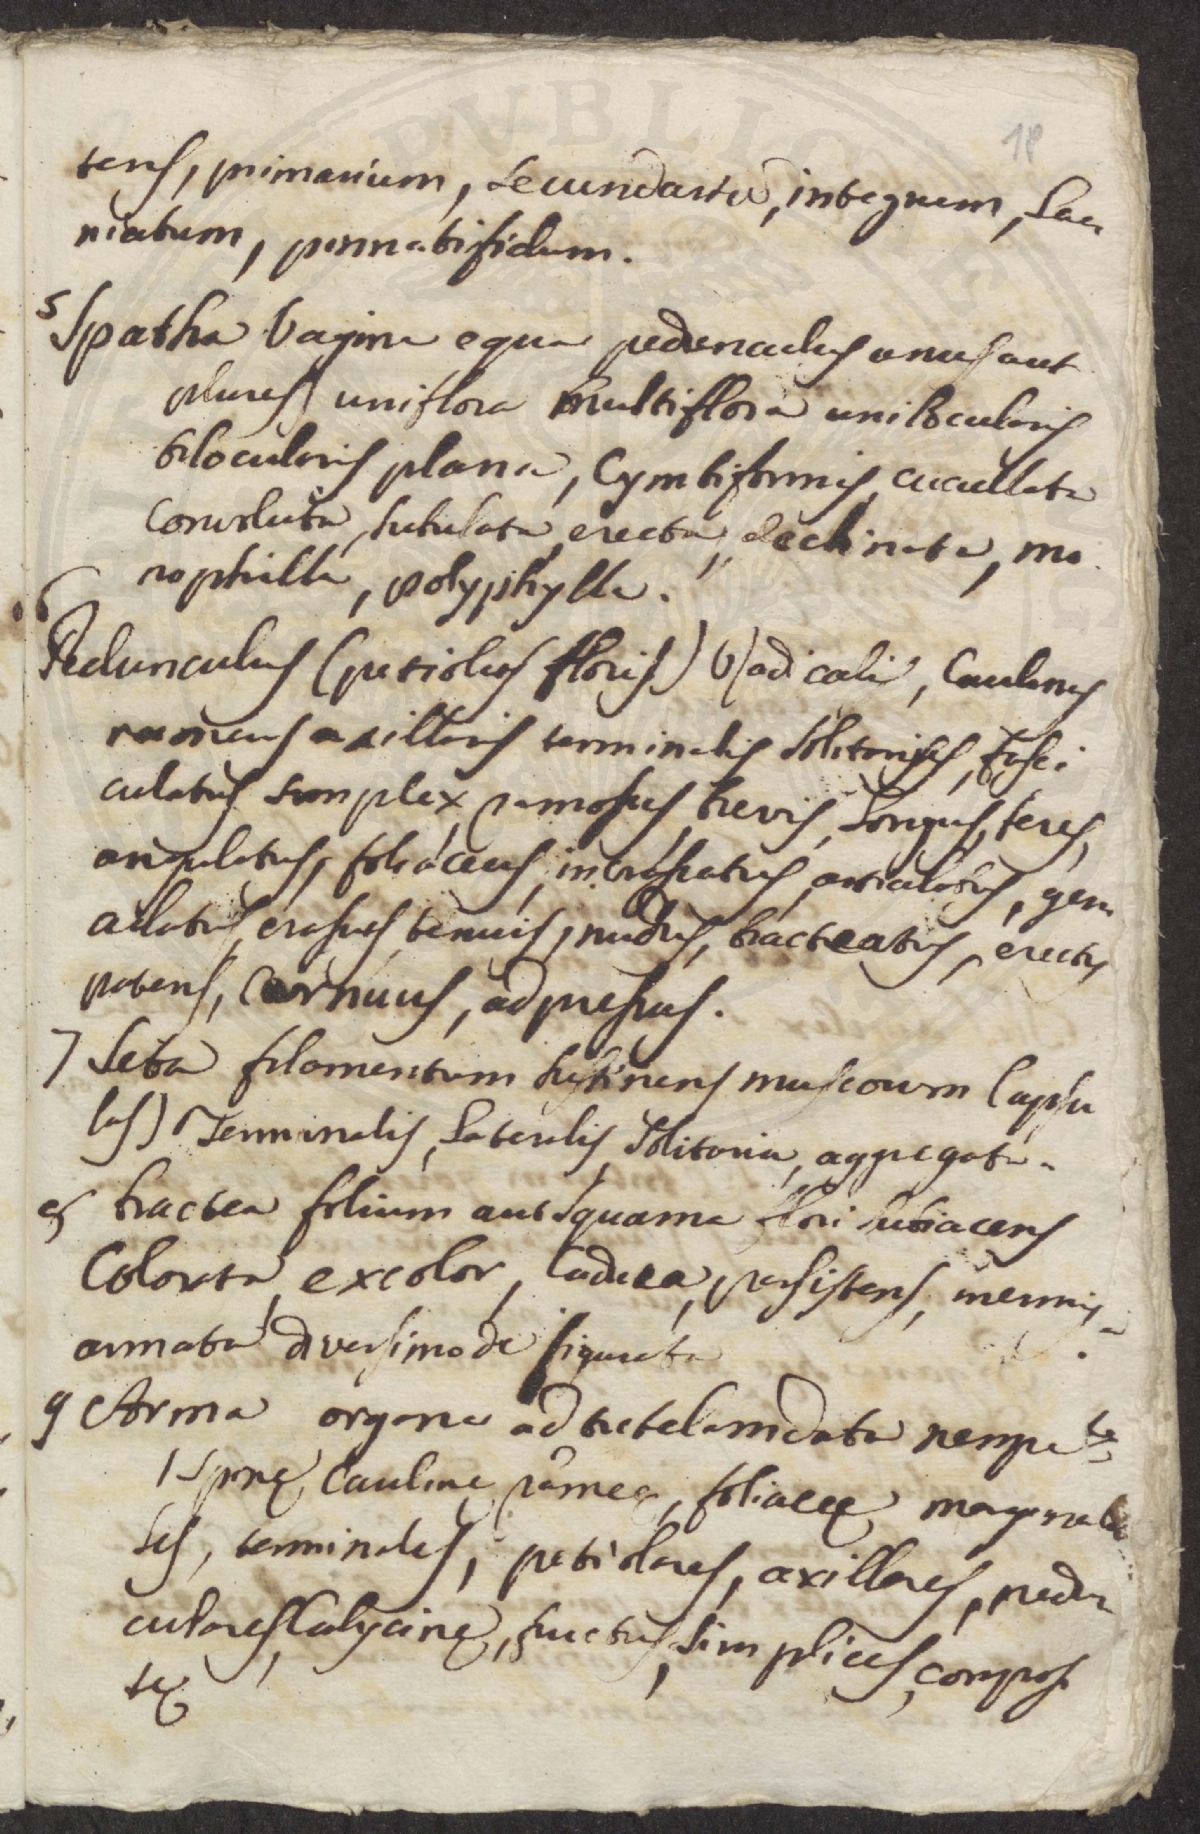 18
tens, primarium, secundariu, integrum, laci
niatum, pennatifidum.
5 Spatha vagina e qua pedunculus unus aut
plures) uniflora multiflora unilocularis
bilocularis plana, cymbiformis, cucullata
convoluta, subulata, erecta, declinata, mo
nophilla, polyphylla.
6
Pedunculus (petiolus floris) radicalis, caulinus
rameus axillaris terminalis solitarius, fasci
culatus simplex, ramosus, brevis, longus, teres,
angulatus, foliaceus, incrassatus, articulatus, geni
culatus, crassus, tenuis, nudus, bracteatus, erectus
patens, cernuus, adpressus.
7 Seta filamentum sustinens muscorum capsu
las) Terminalis, lateralis, solitaria, aggregata.
8 bractea folium aut squama flori subiacens
colorata, excolor, caduca, persistens, inermis,
armata diversimode figurata
9 Arma organa ad tutelam data nempe
1 Spinę caulinę, rameę, foliaceę marginal
les, terminales, petiolares, axillares, pedun
culares, calycinę, fructus, simplices, composi
tę